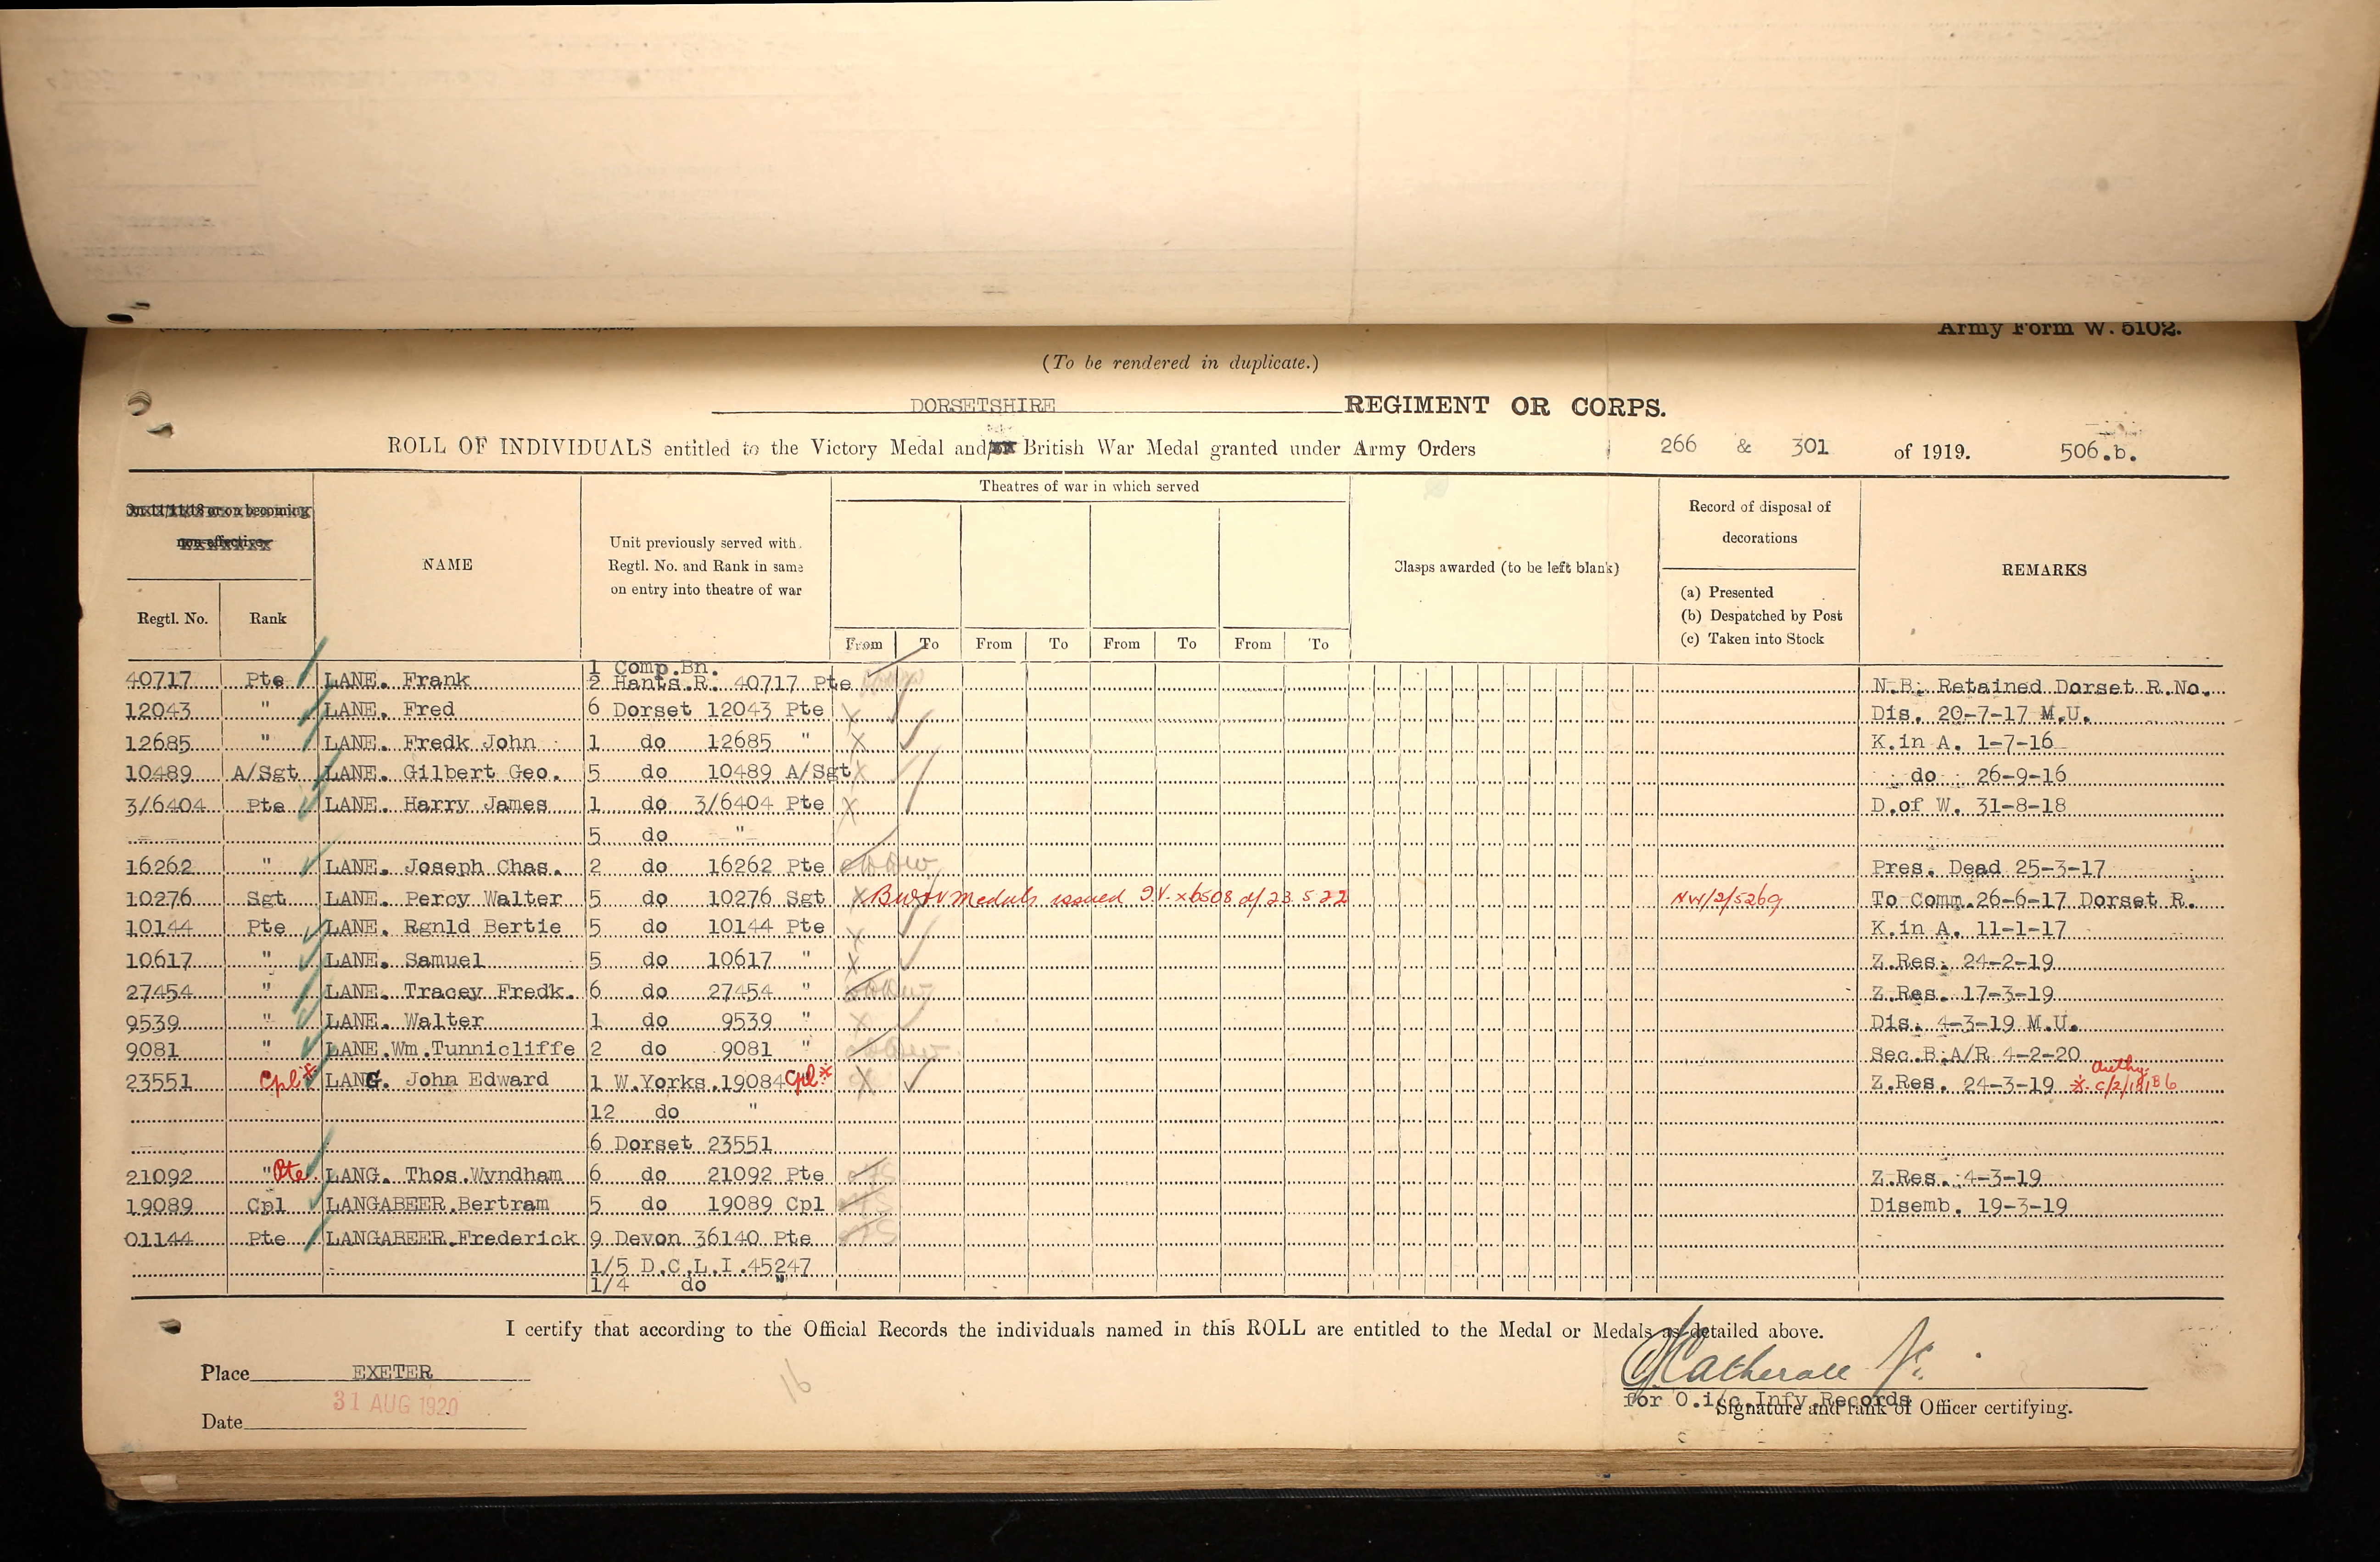 Army Form W. 5102.
(To be rendered in duplicate.)
DORSETSHIRE REGIMENT OR CORPS.
ROLL OF INDIVIDUALS entitled to the Victory Medal and British War Medal granted under Army Orders 266 & 301 of 1919. 506.b.
On 11/11/18 or on becoming
non-effective
Regtl. No. Rank
NAME
Unit previously served with.
Regtl. No. and Rank in same
on entry into theatre of war
Theatres of war in which served
From To From To From To From To
Clasps awarded (to be left blank)
Record of disposal of
decorations
(a) Presented
(b) Despatched by Post
(c) Taken into Stock
REMARKS
1 Comp.Bn.
40717 Pte LANE. Frank 2 Hants.R. 40717 Pte N.B. Retained Dorset R.No.
12043 " LANE. Fred 6 Dorset 12043 Pte X Dis. 20-7-17 M.U.
12685 " LANE. Fredk John 1 do 12685 " X K.in A. 1-7-16
10489 A/Sgt LANE. Gilbert Geo. 5 do 10489 A/Sgt X do 26-9-16
3/6404 Pte LANE. Harry James 1 do 3/6404 Pte X D.of W. 31-8-18
5 do "
16262 " LANE. Joseph Chas. 2 do 16262 Pte Pres. Dead 25-3-17
10276 Sgt LANE. Percy Walter 5 do 10276 Sgt X BW&V Medals issued I.V. x6508 d/23 5 22 NW/2/5269 To Comm.26-6-17 Dorset R.
10144 Pte LANE. Rgnld Bertie 5 do 10144 Pte X K.in A. 11-1-17
10617 " LANE. Samuel 5 do 10617 " X Z.Res. 24-2-19
27454 " LANE. Tracey Fredk. 6 do 27454 " Z.Res. 17-3-19
9539 " LANE. Walter 1 do 9539 " X Dis. 4-3-19 M.U.
9081 " LANE.Wm.Tunnicliffe 2 do 9081 " Sec.B.A/R 4-2-20
23551 Cpl* LANG. John Edward 1 W.Yorks.19084 Cpl* X Z.Res. 24-3-19 * Authy. C/2/181B6
12 do "
6 Dorset 23551
21092 " Pte. LANG. Thos.Wyndham 6 do 21092 Pte Z.Res. 4-3-19
19089 Cpl LANGABEER.Bertram 5 do 19089 Cpl Disemb. 19-3-19
01144 Pte LANGABEER.Frederick 9 Devon 36140 Pte
1/5 D.C.L.I.45247
1/4 do "
I certify that according to the Official Records the individuals named in this ROLL are entitled to the Medal or Medals as detailed above.
Place EXETER
31 AUG 1920
Date
16
for O.i/c.Infy.Records
Signature and rank of Officer certifying.